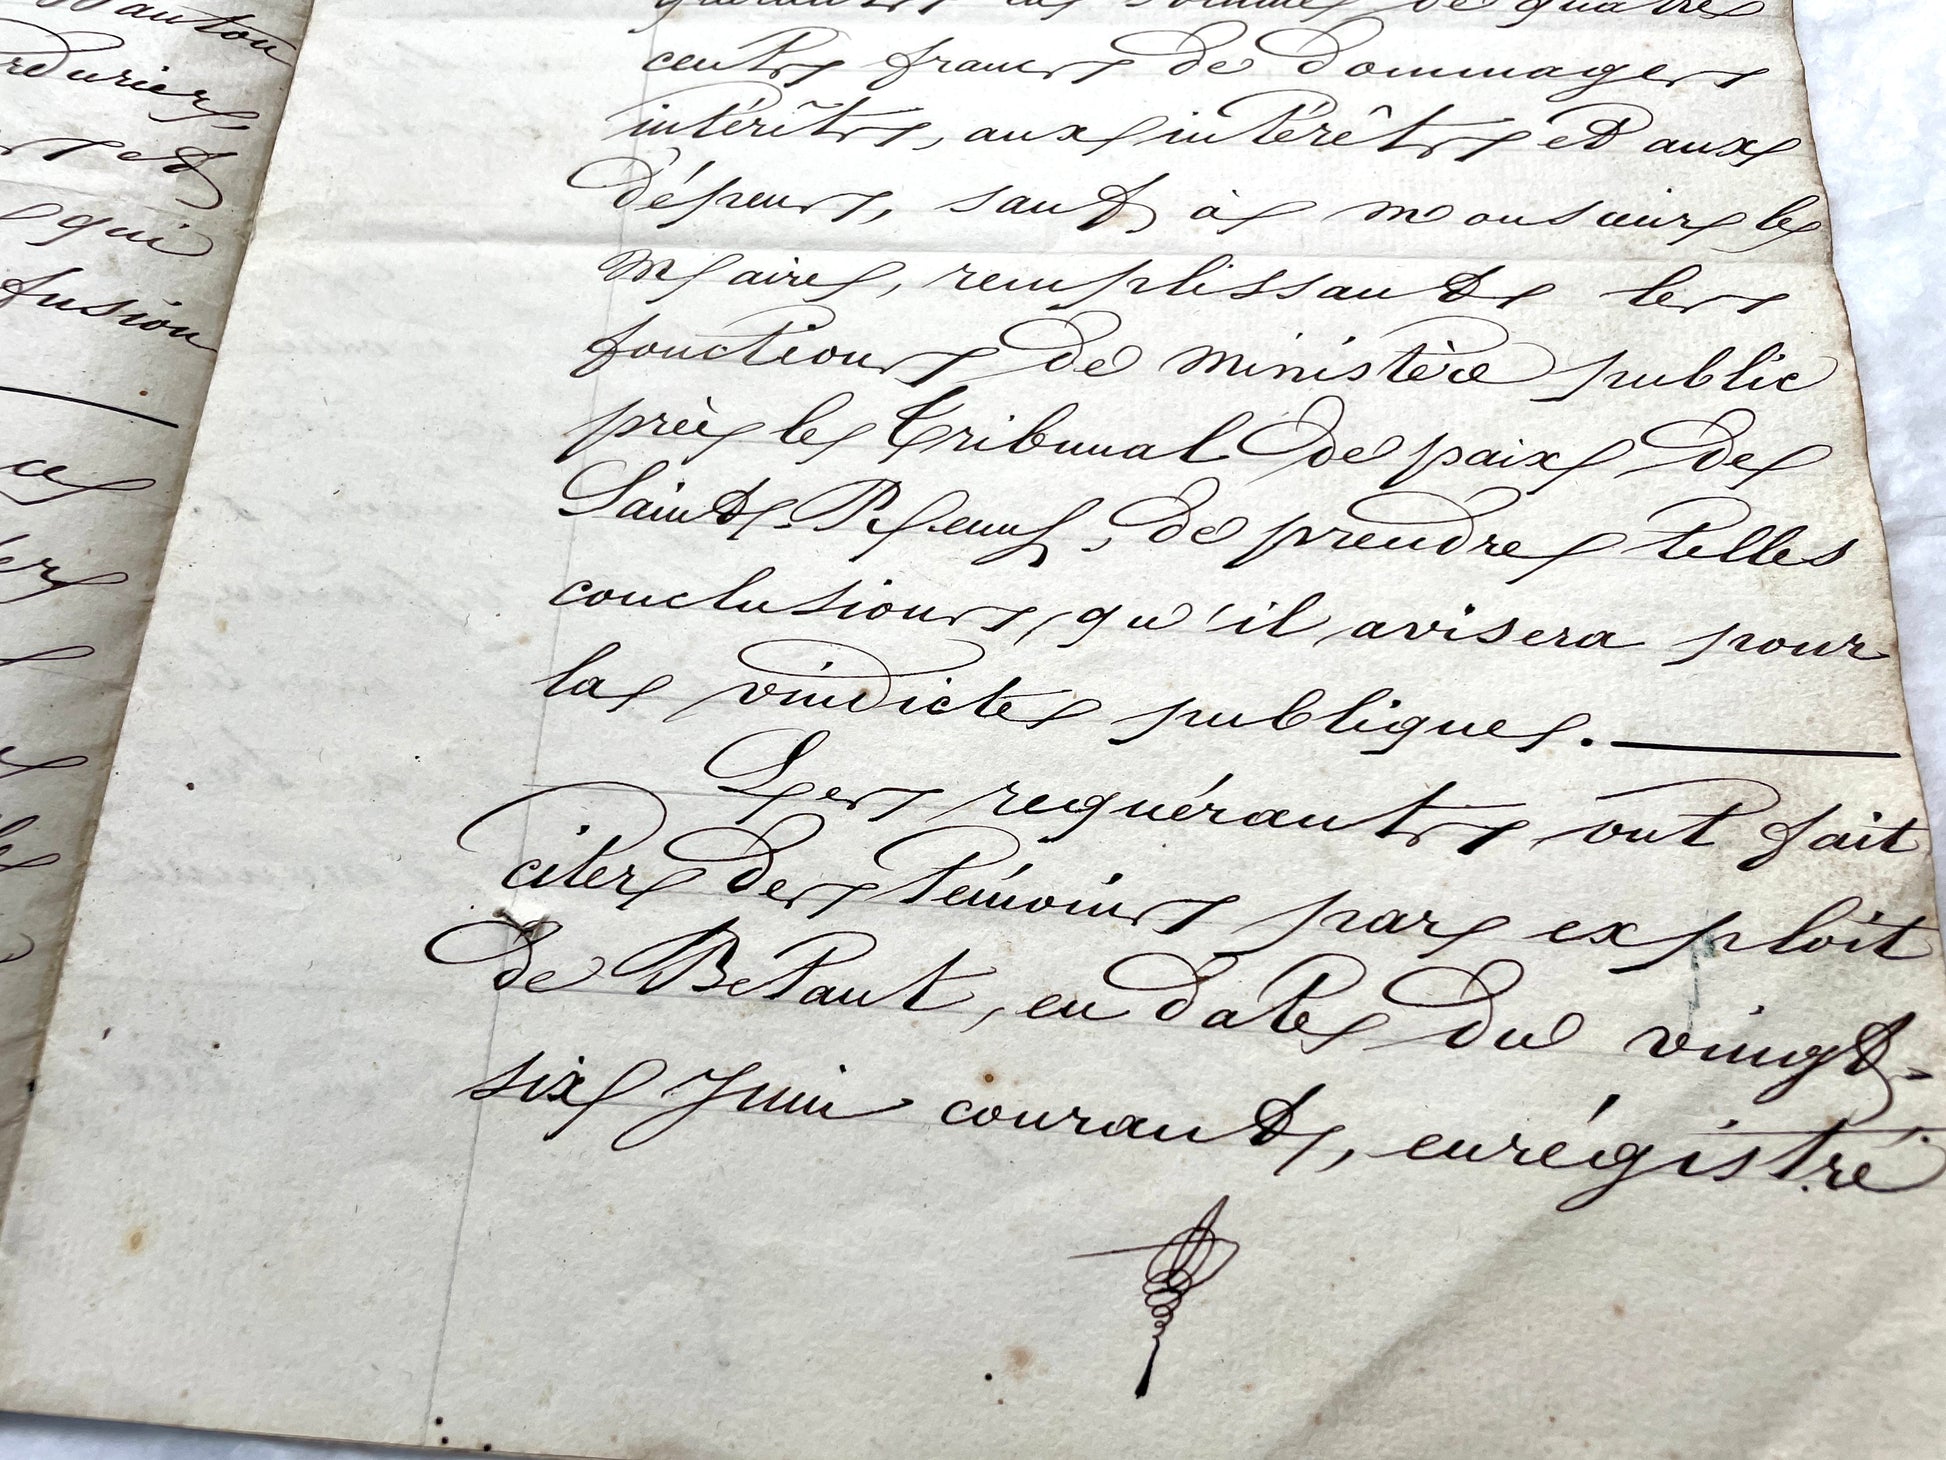 Mauton
rduriers,
et
qui
fusion
ce
la somme de quatre
cents francs de dommages
intérêts, aux intérêts et aux
dépens, sauf à monsieur le
Maire, remplissant les
fonctions de ministère public
près le Tribunal de paix de
Saint-Peray, de prendre telles
conclusions qu'il avisera pour
la vindicte publique.
Les requérants ont fait
citer des témoins par exploit
de Betant, en date du vingt-
six Juin courant, enrégistré